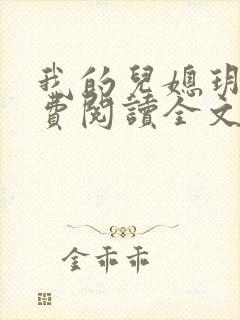 我的兒媳玥
費閱讀全文
金乖乖